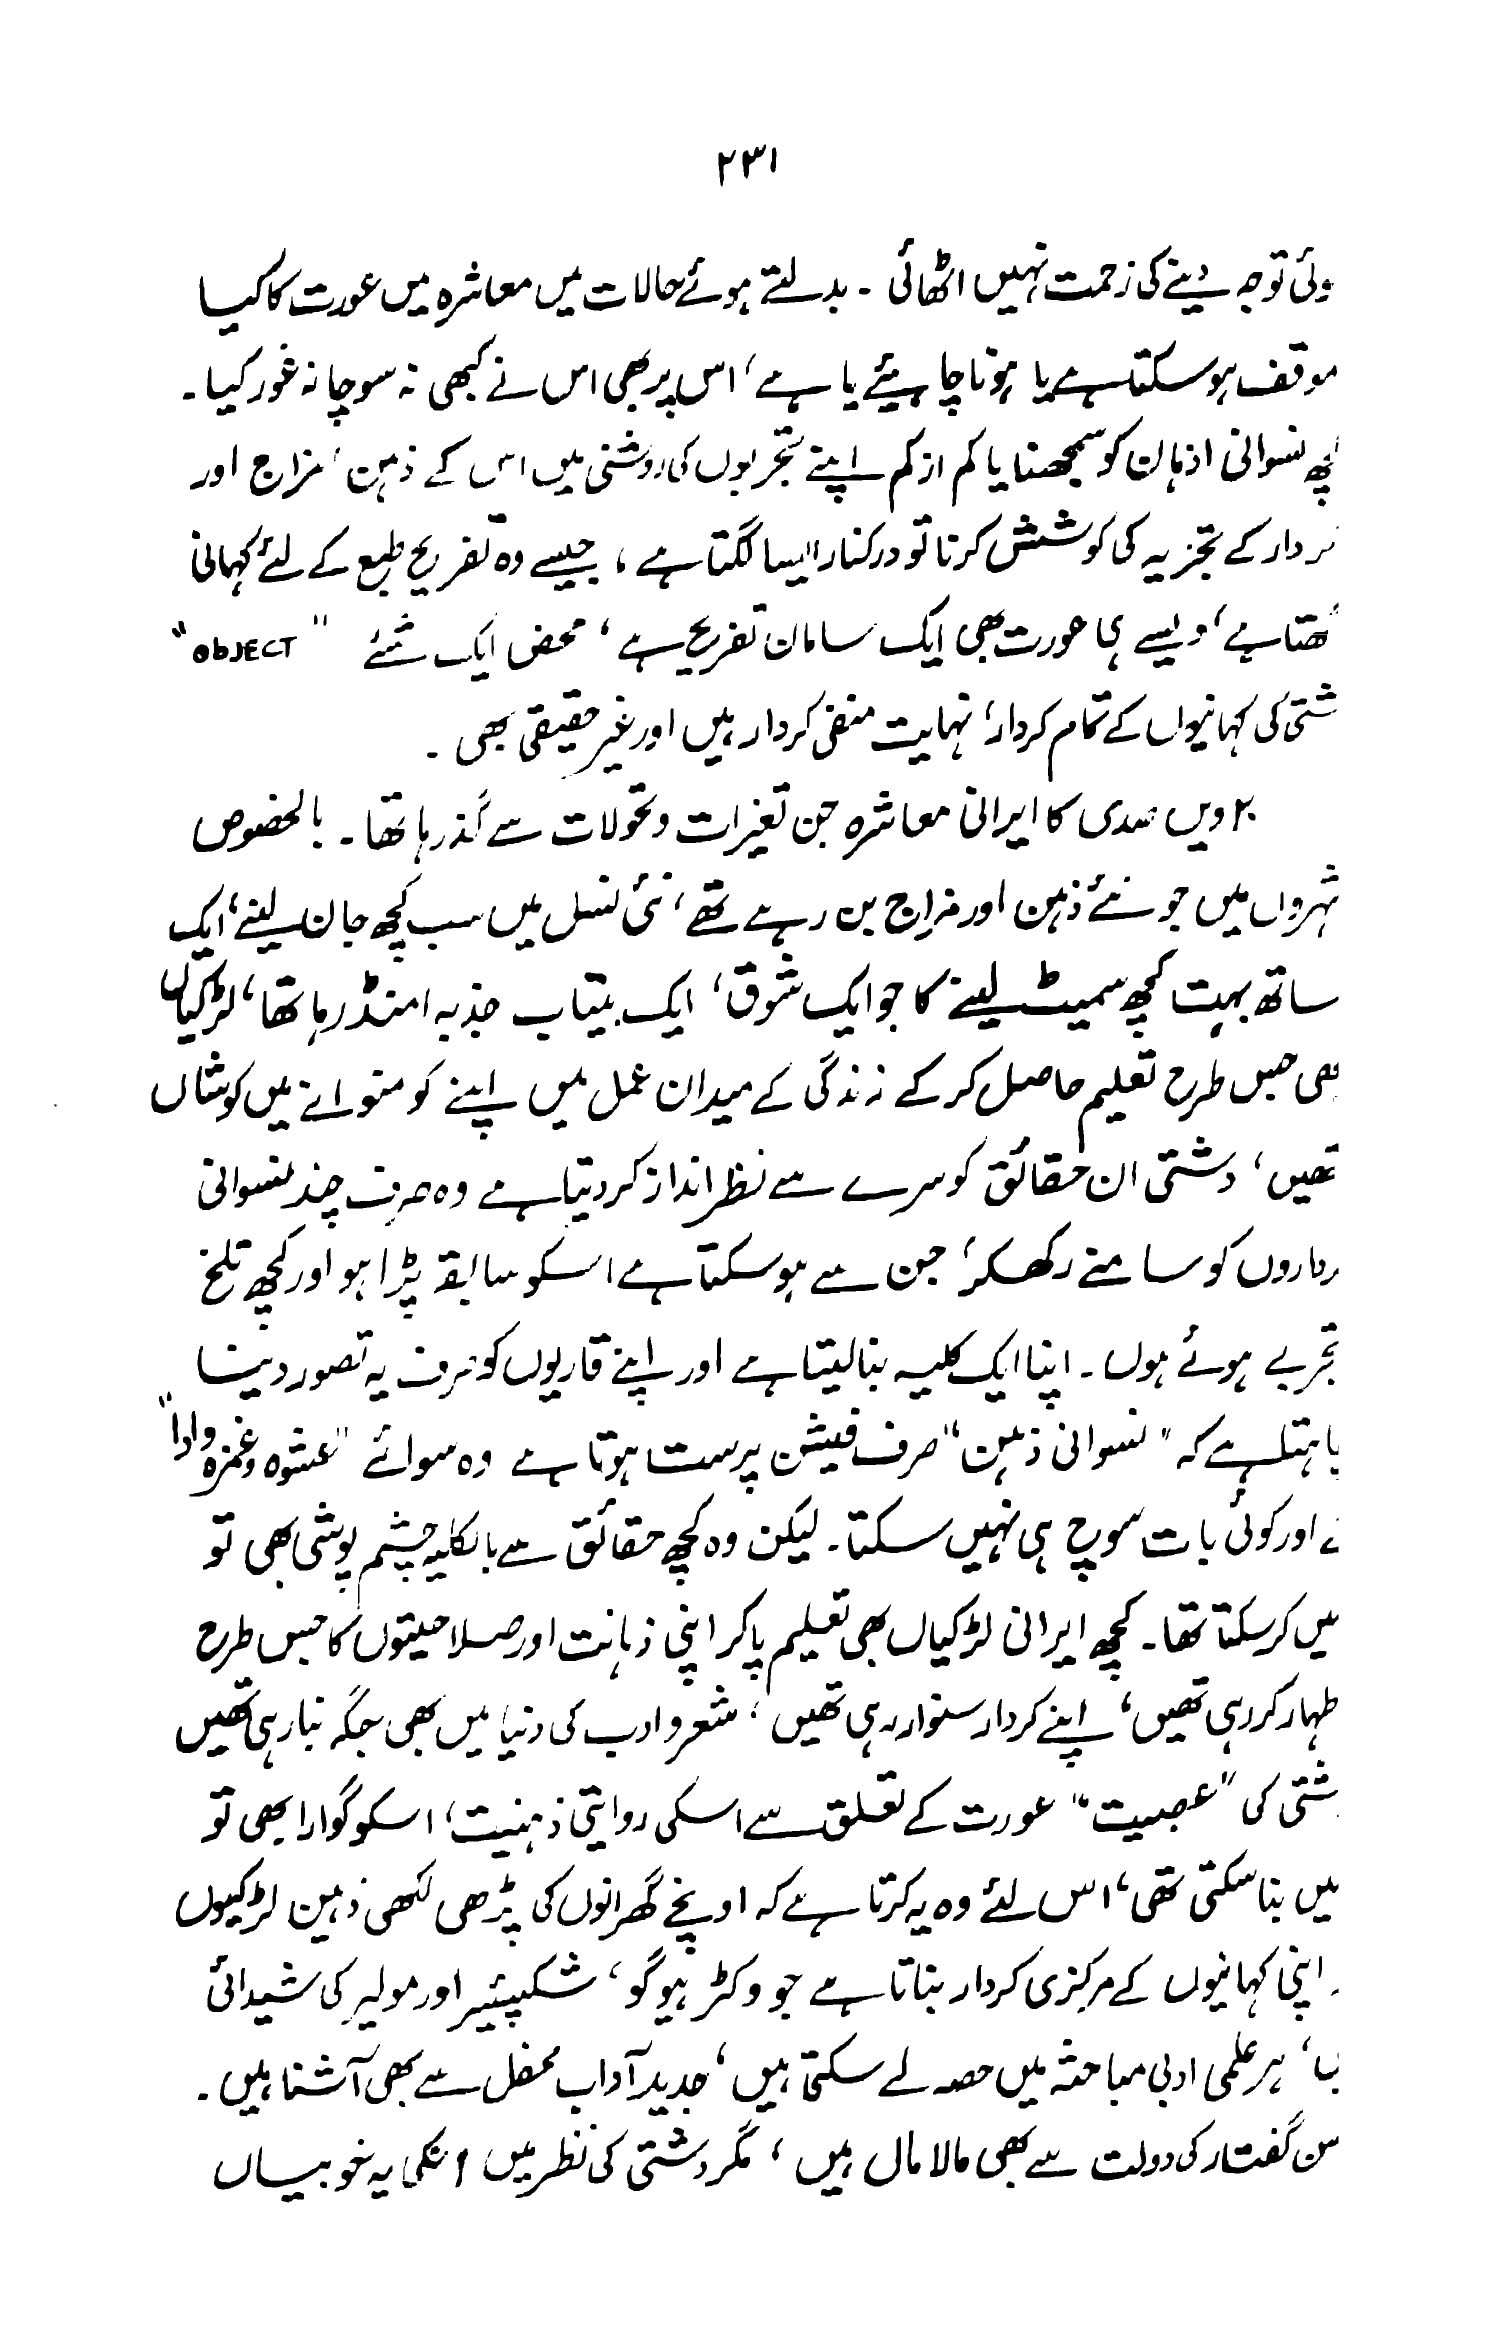 ۲۳۱
وئی توجہ دینے کی زحمت نہیں اٹھائی ۔ بدلتے ہوئے حالات میں معاشرہ میں عورت کا کیا
موقف ہوسکتا ہے یا ہونا چاہیئے یا ہے، اس پر بھی اس نے کبھی نہ سوچا نہ غور کیا ۔
چھ نسوانی اذہان کو سمجھنا یا کم از کم اپنے تجربوں کی روشنی میں اس کے ذہن، مزاج اور
ردار کے تجزیہ کی کوشش کرنا تو درکنار ایسا لگتا ہے، جیسے وہ تفریح طبع کے لئے کہانی
ھتا ہے، ویسے ہی عورت بھی ایک سامان تفریح ہے، محض ایک شئے "OBJECT"
شتی کی کہانیوں کے تمام کردار، نہایت منفی کردار ہیں اور غیر حقیقی بھی ۔
۲۰ ویں صدی کا ایرانی معاشرہ جن تغیرات و تحولات سے گذر رہا تھا ۔ بالخصوص
شہروں میں جو نئے ذہن اور مزاج بن رہے تھے، نئی نسل میں سب کچھ جان لینے، ایک
ساتھ بہت کچھ سمیٹ لینے کا جو ایک شوق، ایک بیتاب جذبہ امنڈ رہا تھا، لڑکیاں
بھی جس طرح تعلیم حاصل کر کے زندگی کے میدان عمل میں اپنے کو منوانے میں کوشاں
تھیں، دشتی ان حقائق کو سرے سے نظر انداز کر دیتا ہے وہ صرف چند نسوانی
رداروں کو سامنے رکھکر، جن سے ہوسکتا ہے اسکو سابقہ پڑا ہو اور کچھ تلخ
تجربے ہوئے ہوں ۔ اپنا ایک کلیہ بنا لیتا ہے اور اپنے قاریوں کو صرف یہ تصور دینا
چاہتا ہے کہ "نسوانی ذہن" صرف فیشن پرست ہوتا ہے وہ سوائے "عشوہ و غمزہ و ادا"
کے اور کوئی بات سوچ ہی نہیں سکتا ۔ لیکن وہ کچھ حقائق سے بالکلیہ چشم پوشی بھی تو
ہیں کرسکتا تھا ۔ کچھ ایرانی لڑکیاں بھی تعلیم پاکر اپنی ذہانت اور صلاحیتوں کا جس طرح
ظہار کر رہی تھیں، اپنے کردار سنوار رہی تھیں، شعر و ادب کی دنیا میں بھی جگہ بنا رہی تھیں
شتی کی "عصبیت" عورت کے تعلق سے اسکی روایتی ذہنیت، اسکو گوارا بھی تو
ہیں بنا سکتی تھی، اس لئے وہ یہ کرتا ہے کہ اونچے گھرانوں کی پڑھی لکھی ذہین لڑکیوں
اپنی کہانیوں کے مرکزی کردار بناتا ہے جو وکٹر ہیوگو، شکسپیئیر اور مولیر کی شیدائی
ں، ہر علمی ادبی مباحثہ میں حصہ لے سکتی ہیں، جدید آداب محفل سے بھی آشنا ہیں ۔
سن گفتار کی دولت سے بھی مالا مال ہیں، مگر دشتی کی نظر میں انکی یہ خوبیاں